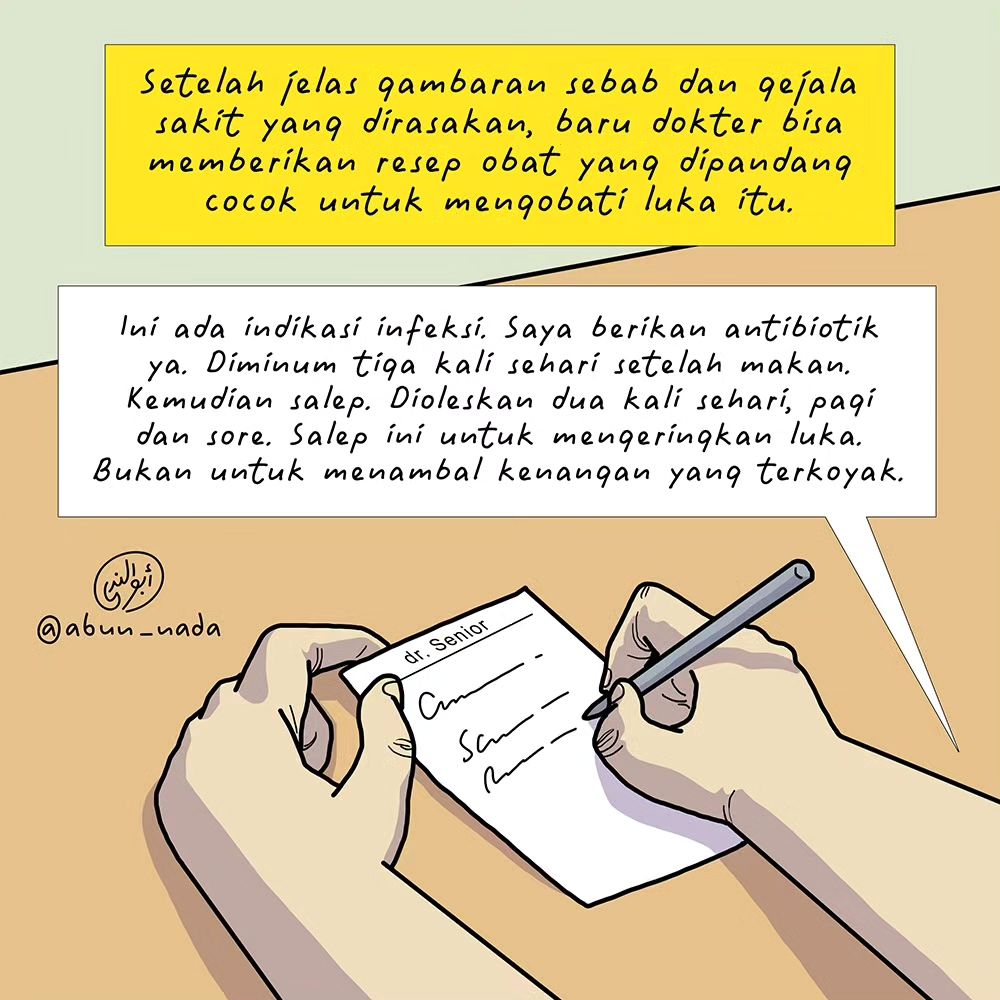 Setelah jelas gambaran sebab dan gejala
sakit yang dirasakan, baru dokter bisa
memberikan resep obat yang dipandang
cocok untuk mengobati luka itu.
Ini ada indikasi infeksi. Saya berikan antibiotik
ya. Diminum tiga kali sehari setelah makan.
Kemudian salep. Dioleskan dua kali sehari, pagi
dan sore. Salep ini untuk mengeringkan luka.
Bukan untuk menambal kenangan yang terkoyak.
@abun_nada
dr. Senior